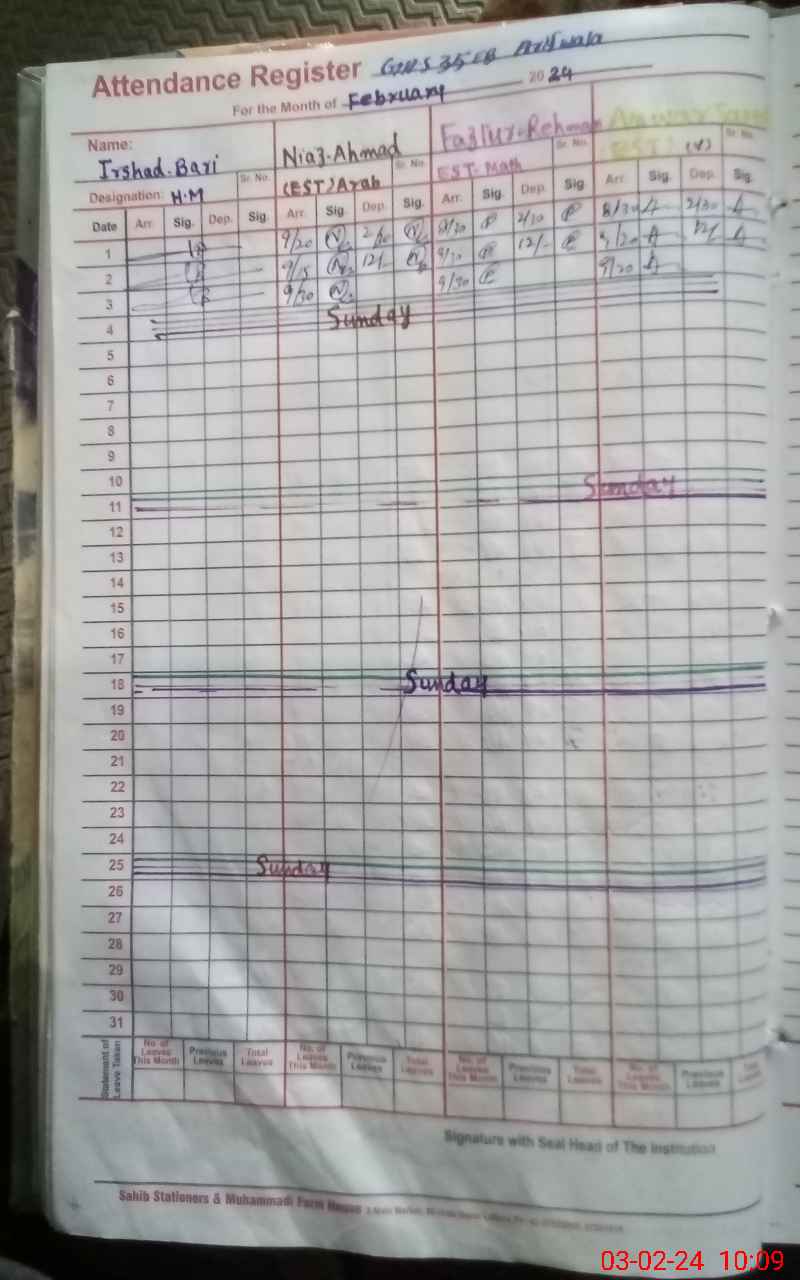 Attendance Register GHS 35 EB Arifwala
For the Month of February 2024
Name: Irshad.Bari Niaz.Ahmad Fazlur.Rehman
Sr. No. (EST)Arab Sr. No. EST-Math Sr. No. (EST) Sr. No.
Designation: H.M
Date Arr. Sig. Dep. Sig. Arr. Sig. Dep. Sig. Arr. Sig. Dep. Sig Arr. Sig. Dep. Sig.
1 9/20 8/30 2/30 8/30 A 2/30 A
2 9/15 12/- 12/- 9/20 A 12/ A
3 9/30 9/30 9/20 A
4 Sunday
5
6
7
8
9
10
11 Sunday
12
13
14
15
16
17
18 Sunday
19
20
21
22
23
24
25 Sunday
26
27
28
29
30
31
Statement of Leave Taken
No. of Leaves This Month Previous Leaves Total Leaves No. of Leaves This Month Previous Leaves Total Leaves No. of Leaves This Month Previous Leaves Total Leaves No. of Leaves This Month Previous Leaves
Signature with Seal Head of The Institution
Sahib Stationers & Muhammadi Form House
03-02-24 10:09